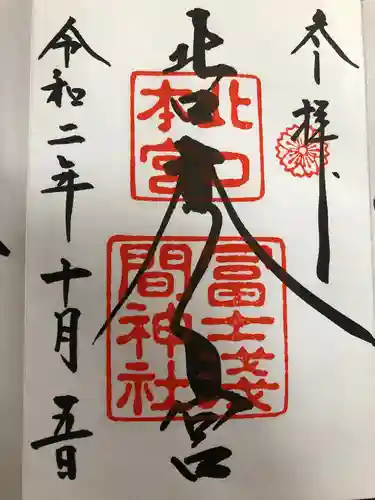 参拝
北口本宮
北口本宮
冨士浅間神社
令和二年十月五日